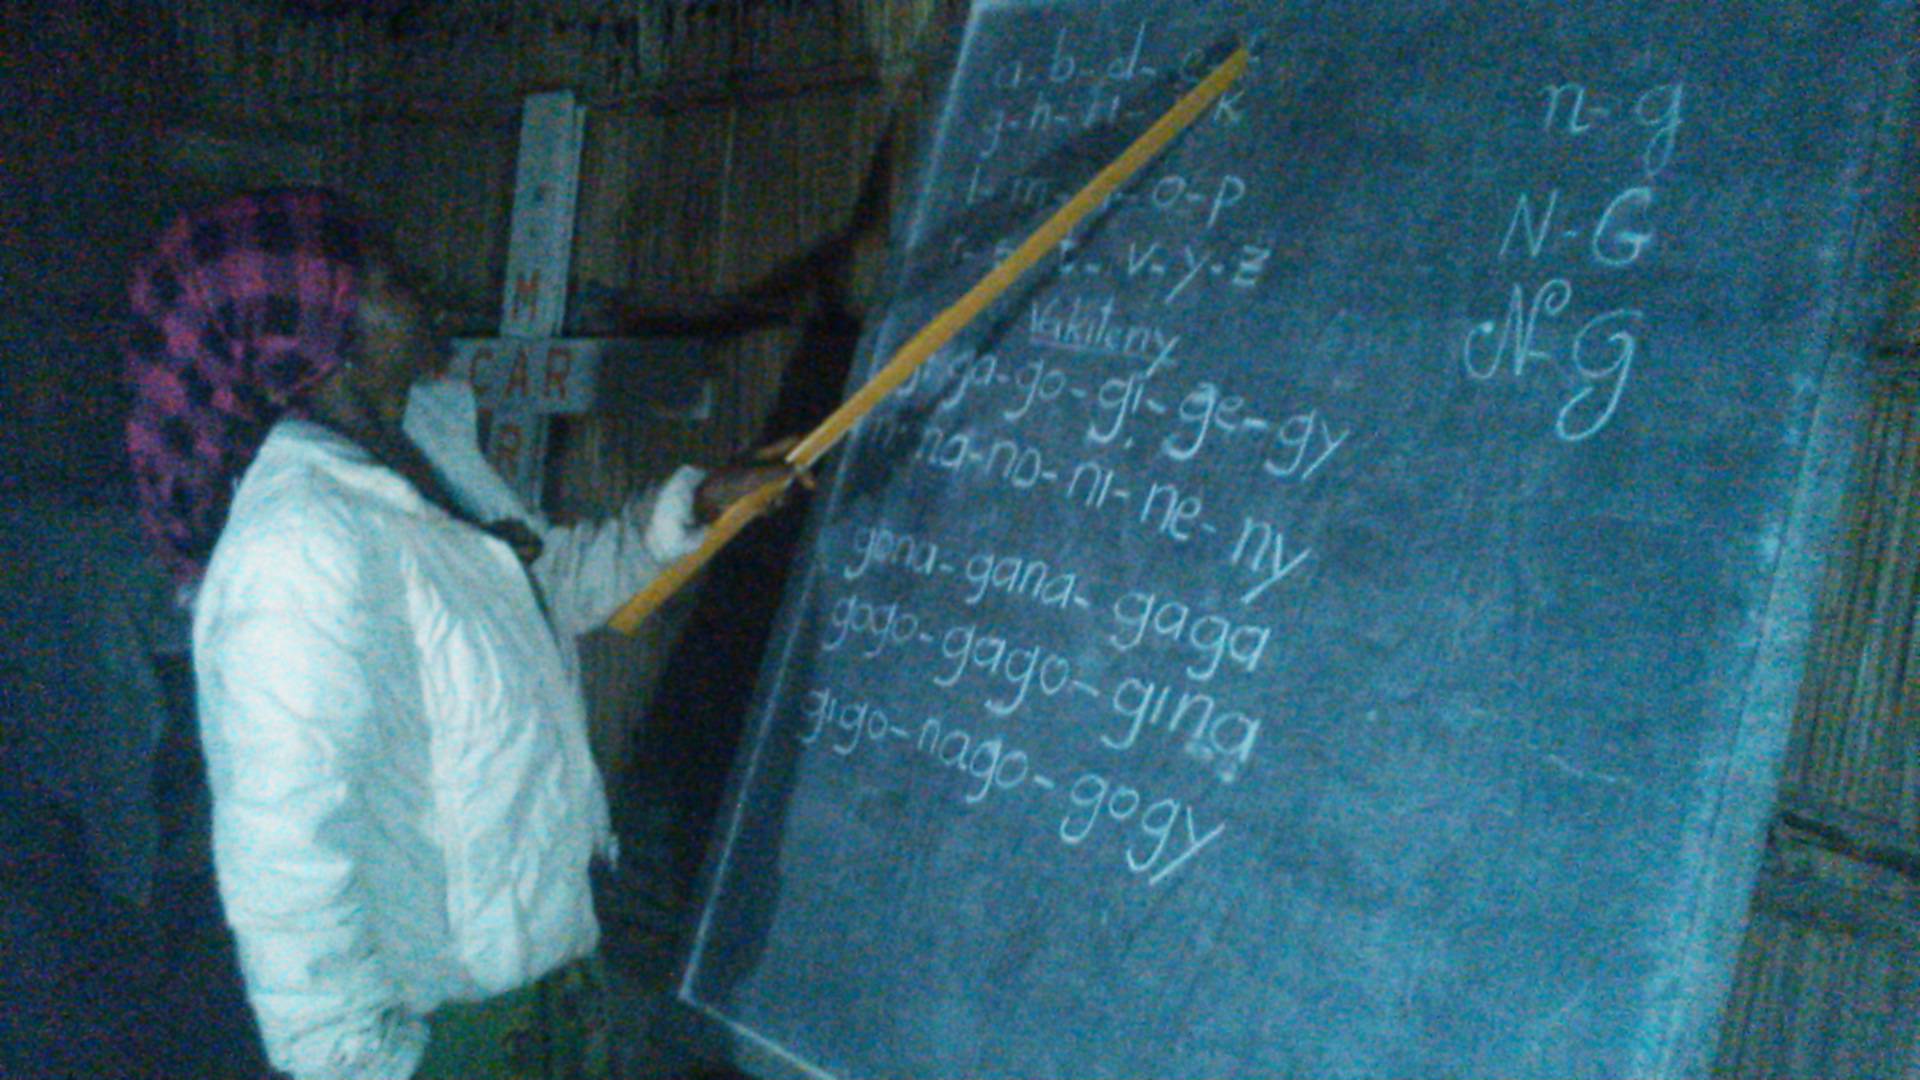 a-b-d-e
g-h-i-k
l-m-o-p
r-s-t-v-y-z
Vakiteny
g: ga-go-gi-ge-gy
n: na-no-ni-ne-ny
gona-gana-gaga
gogo-gago-gina
gigo-nago-gogy
n-g
N-G
N-G
M
CAR
R